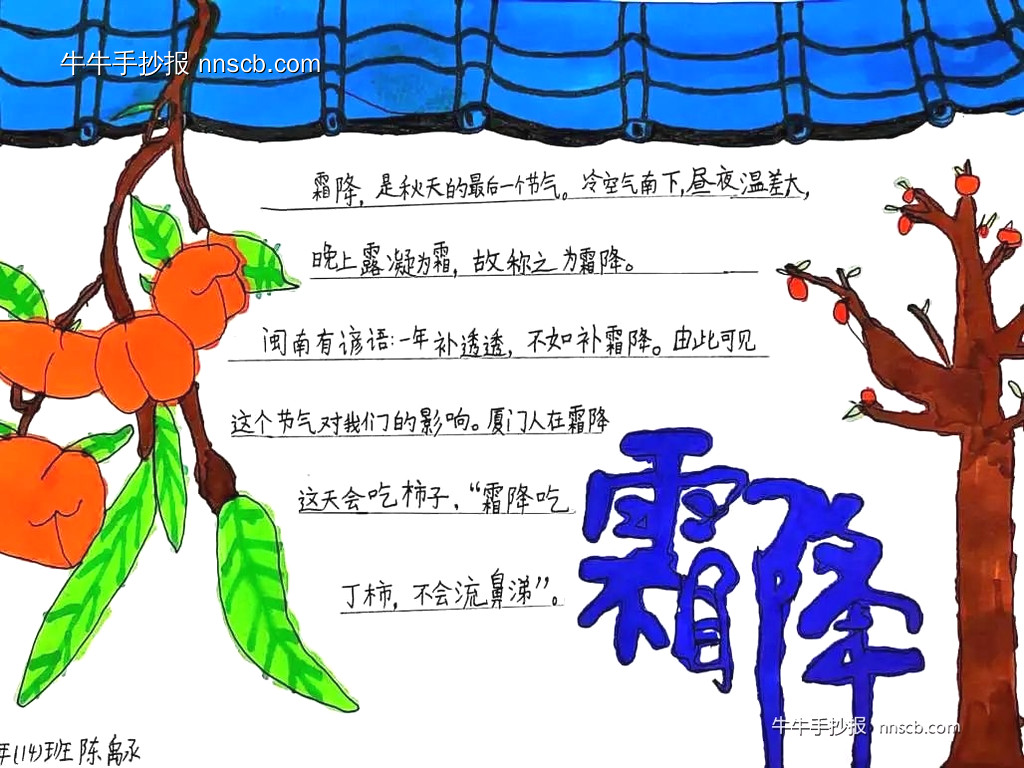 牛牛手抄报 nnscb.com
霜降，是秋天的最后一个节气。冷空气南下，昼夜温差大，
晚上露凝为霜，故称之为霜降。
闽南有谚语：一年补透透，不如补霜降。由此可见
这个节气对我们的影响。厦门人在霜降
这天会吃柿子，“霜降吃
丁柿，不会流鼻涕”。
霜降
牛牛手抄报 nnscb.com
年(14)班 陈禹丞